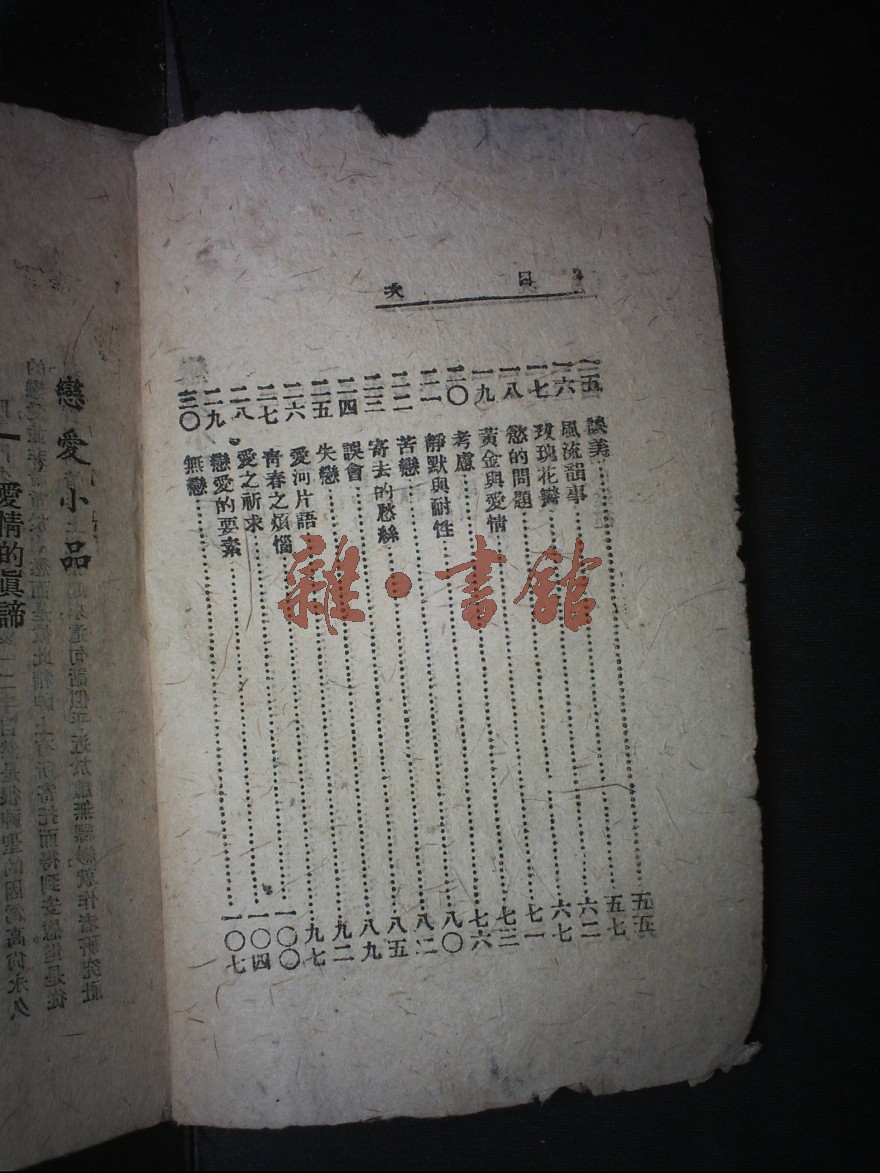 目次
一五 談美 五五
一六 風流韻事 五七
一七 玫瑰花瓣 六二
一八 慾的問題 六七
一九 黃金與愛情 七一
二〇 考慮 七三
二一 靜默與耐性 七六
二二 苦戀 八〇
二三 寄去的愁絲 八二
二四 誤會 八五
二五 失戀 八九
二六 愛河片語 九二
二七 青春之煩惱 九七
二八 愛之祈求 一〇〇
二九 戀愛的要素 一〇四
三〇 無戀 一〇七
戀愛小品
一 愛情的眞諦
雜·書館